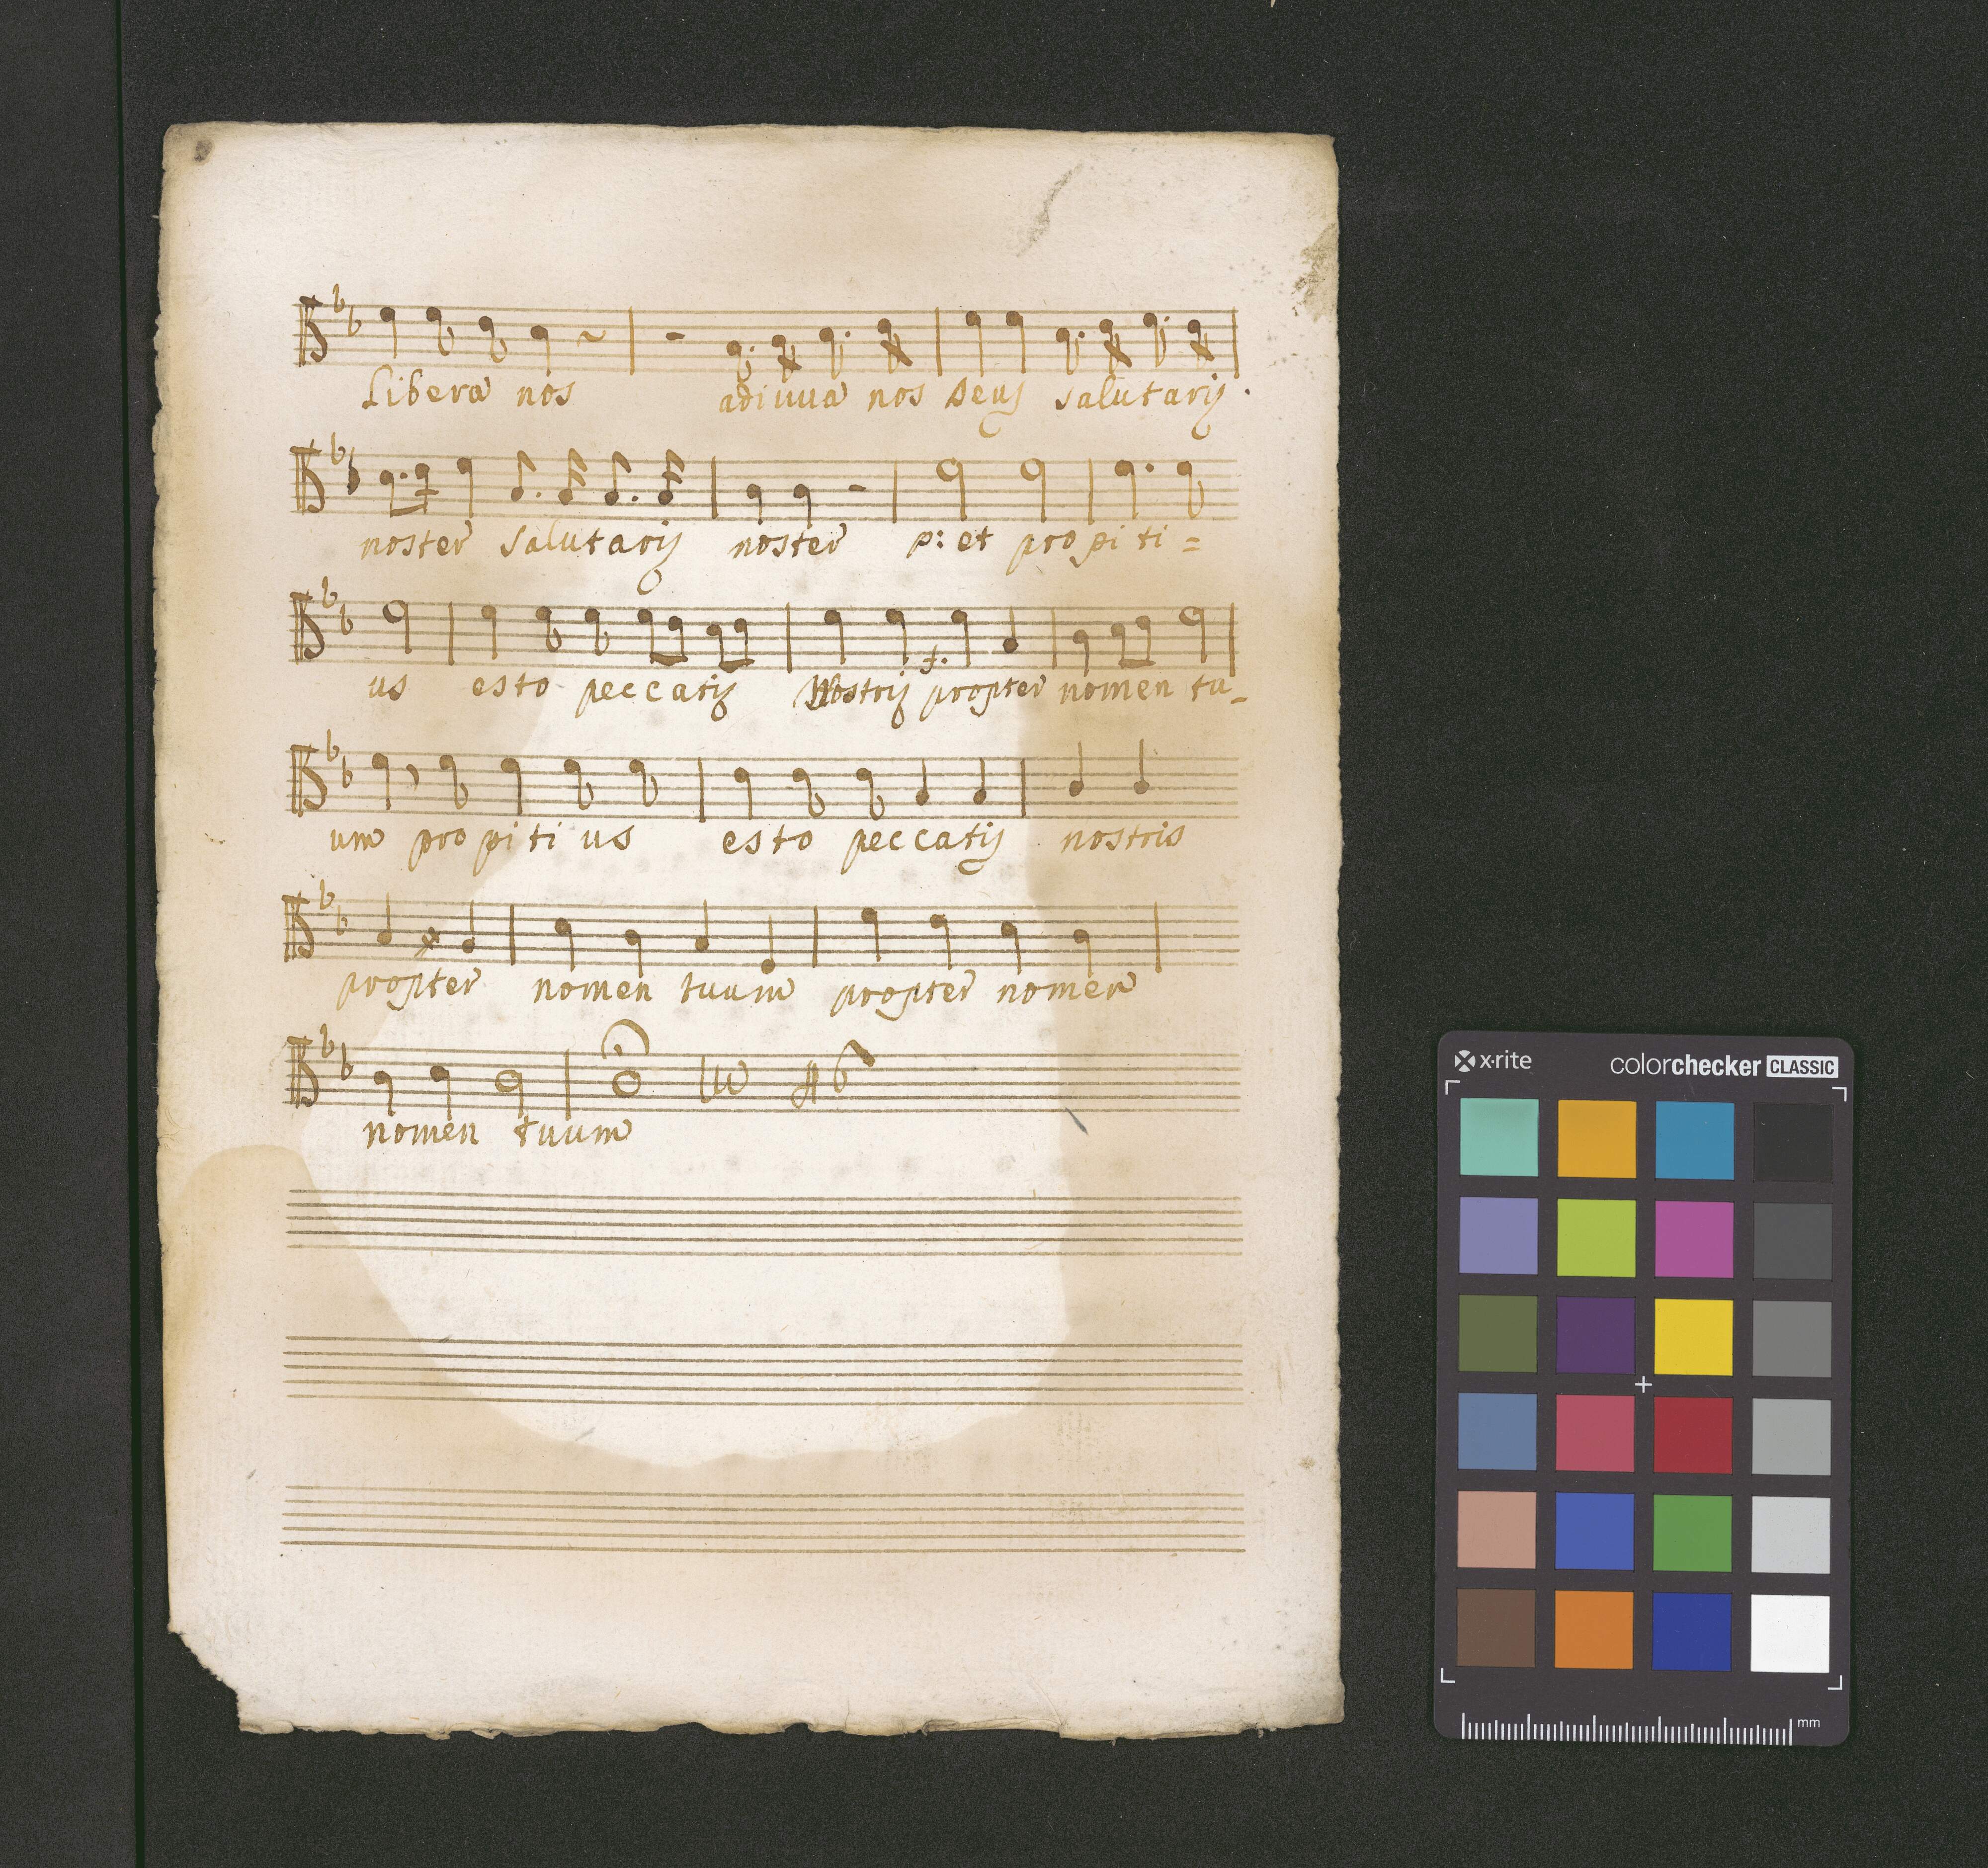 Libera nos adiuua nos Deus salutaris.
noster salutaris noster p: et propiti=
us esto peccatis Nostris propter nomen tu-
um propitius esto peccatis nostris
propter nomen tuum propter nomen
nomen tuum
x-rite colorchecker CLASSIC
mm